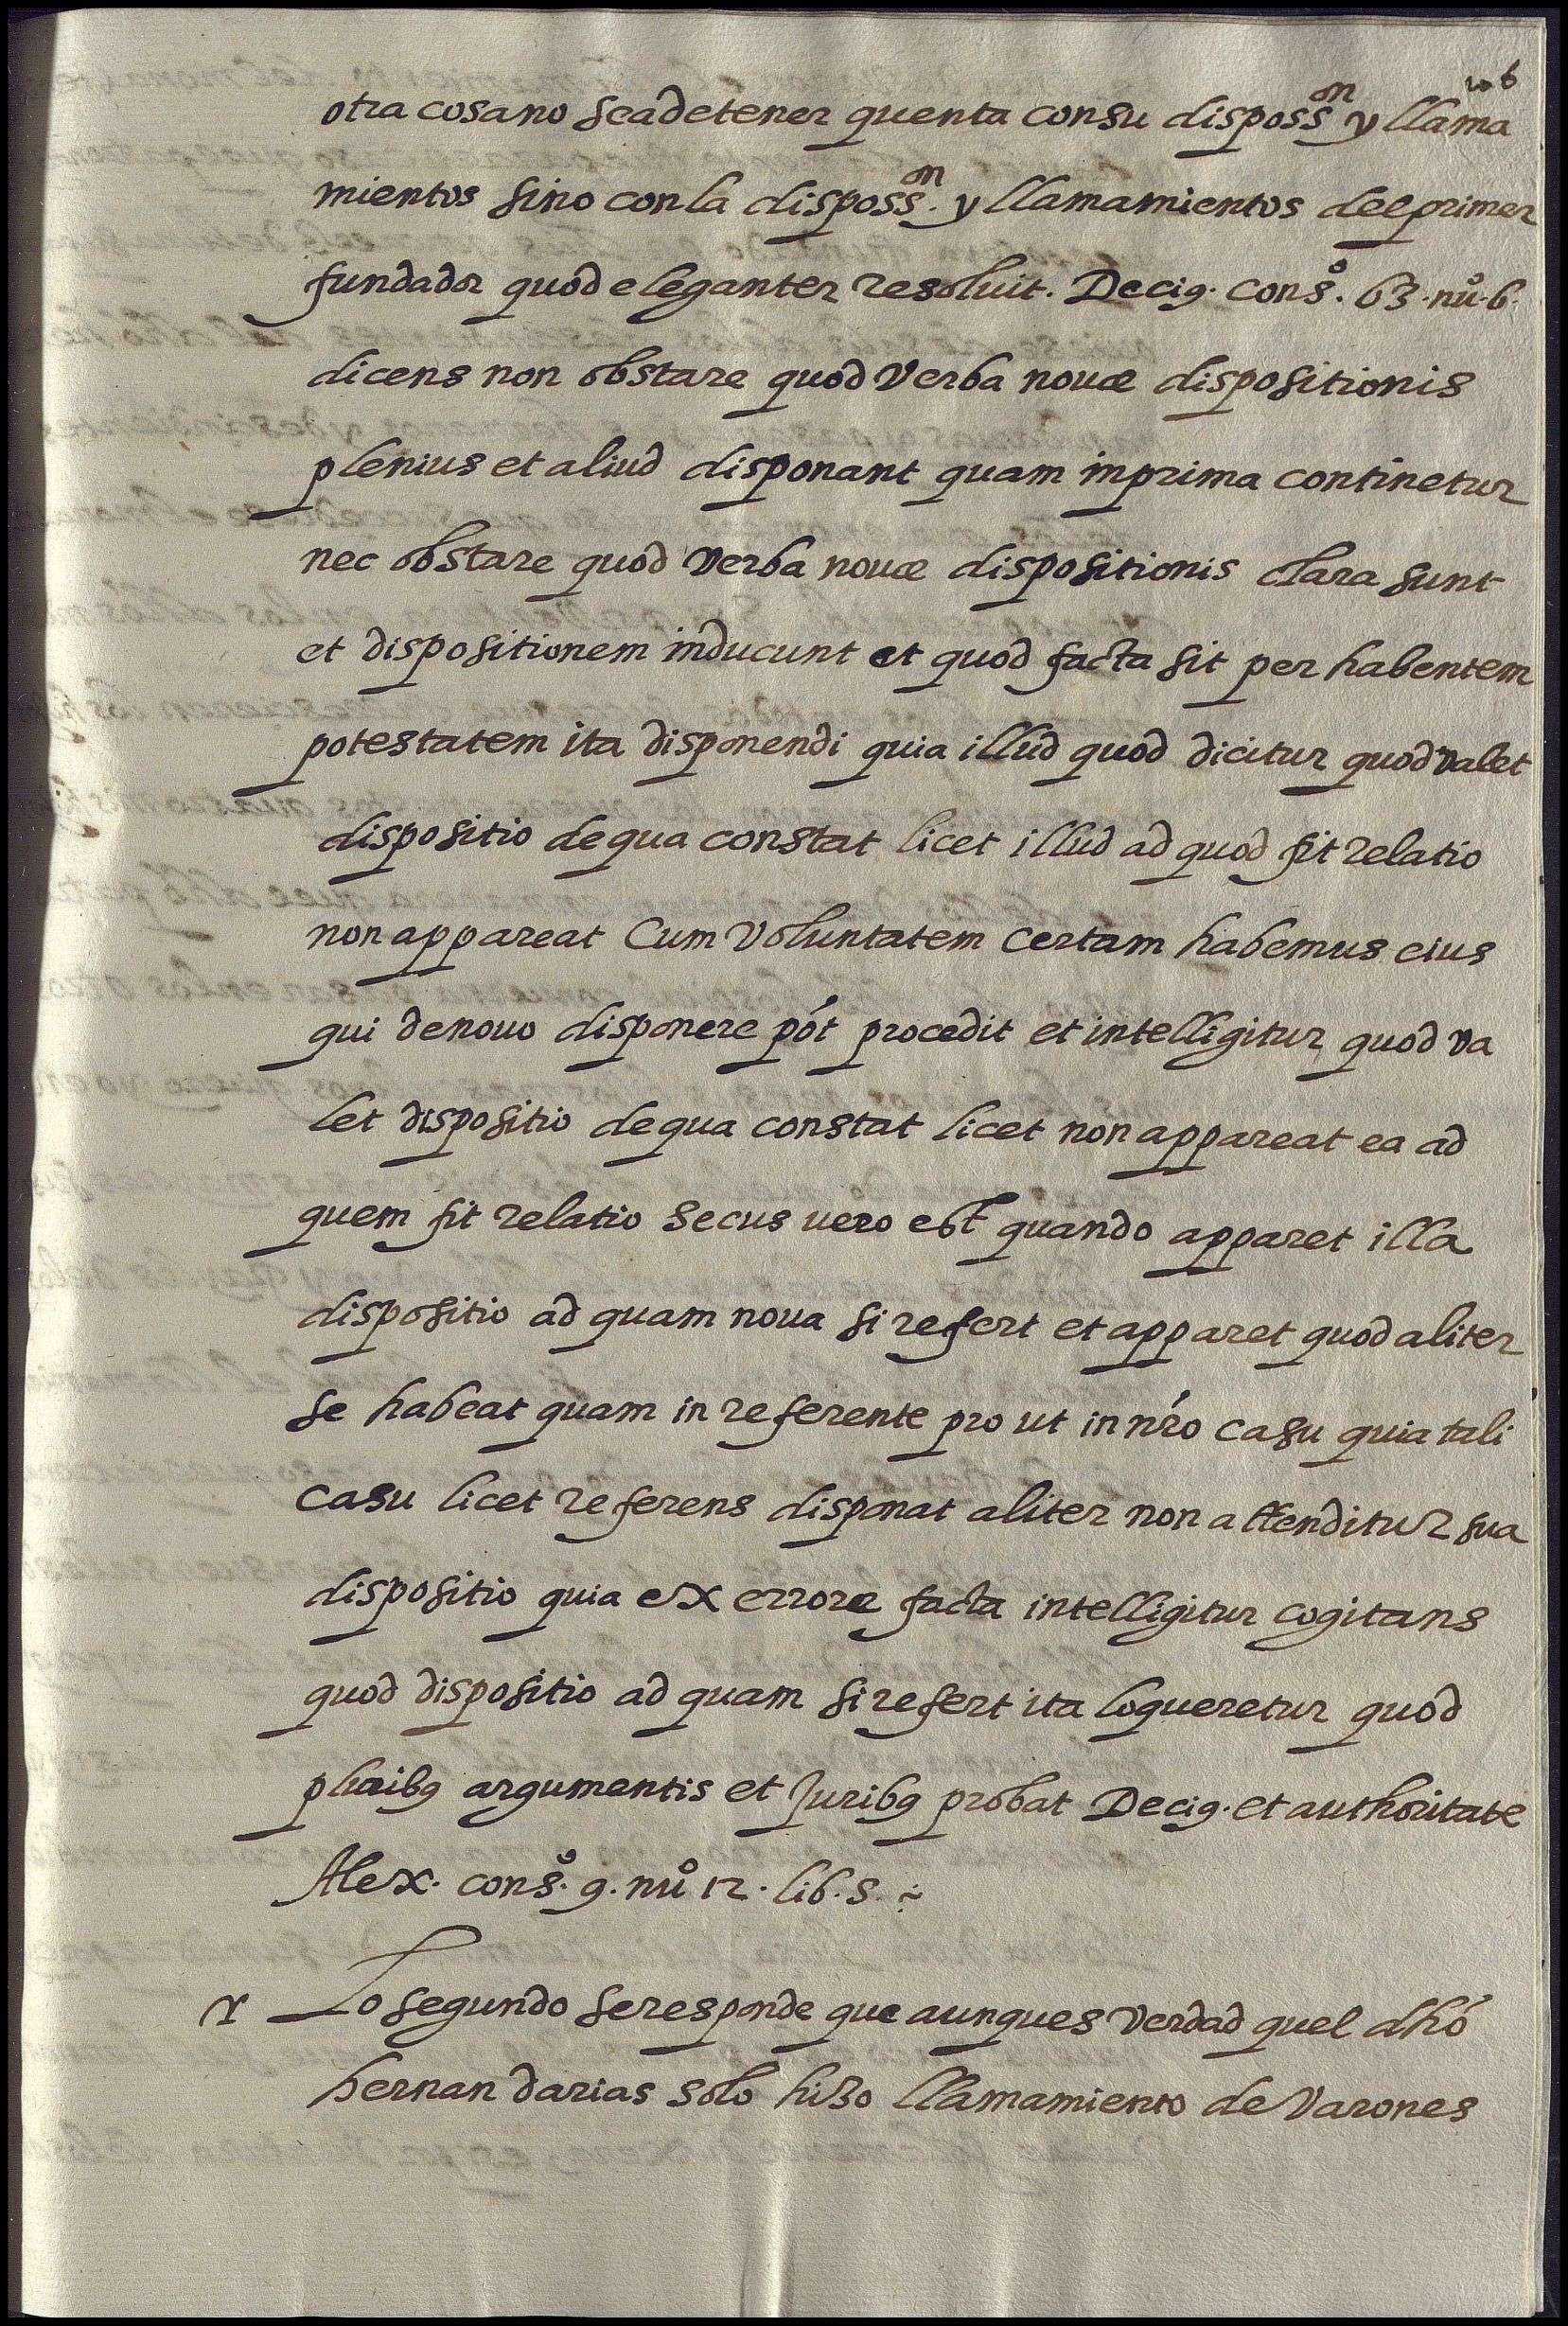 106
otra cosa no sea de tener quenta con su disposs.on y llama
mientos sino con la disposs.on y llamamientos del primer
fundador quod eleganter resoluit. Decig. cons.o 63. nu.o 6.
dicens non obstare quod verba nouæ dispositionis
plenius et aliud disponant quam in prima continetur
nec obstare quod verba nouæ dispositionis clara sunt
et dispositionem inducunt et quod facta sit per habentem
potestatem ita disponendi quia illud quod dicitur quod valet
dispositio de qua constat licet illud ad quod fit relatio
non appareat Cum voluntatem certam habemus eius
qui de nouo disponere pót procedit et intelligitur quod va
let dispositio de qua constat licet non appareat ea ad
quem fit relatio secus uero est quando apparet illa
dispositio ad quam noua si refert et apparet quod aliter
se habeat quam in referente pro ut in nr̃o casu quia tali
casu licet referens disponat aliter non attenditur sua
dispositio quia ex errore facta intelligitur cogitans
quod dispositio ad quam si refert ita loqueretur quod
pluribq argumentis et Juribq probat Decig. et authoritate
Alex. cons.o 9. nu.o 12. lib. 5. ~
Lo segundo se responde que aunques verdad quel dhó
hernan darias solo hizo llamamiento de Varones